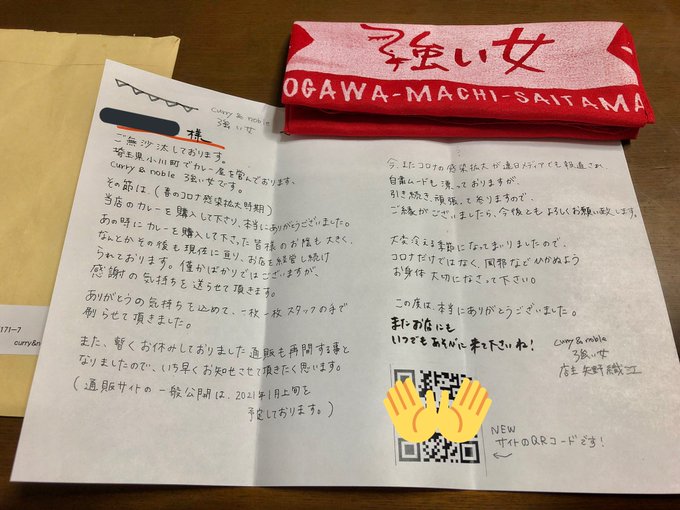 強い女
OGAWA-MACHI-SAITAMA
curry & noble
強い女
様
ご無沙汰しております。
埼玉県小川町でカレー屋を営んでおります、
curry & noble 強い女です。
その節は(春のコロナ感染拡大時期)
当店のカレーを購入して下さり、本当にありがとうございました。
あの時にカレーを購入して下さった皆様のお陰も大きく、
なんとかその後も現在に亘り、お店を経営し続け
られております。僅かばかりではございますが、
感謝の気持ちを送らせて頂きます。
ありがとうの気持ちを込めて、一枚一枚スタッフの手で
刷らせて頂きました。
また、暫くお休みしておりました通販も再開する事と
なりましたので、いち早くお知らせさせて頂きたく思います。
(通販サイトの一般公開は、2021年1月上旬を
予定しております。)
今、またコロナの感染拡大が連日メディアでも報道され、
自粛ムードも漂っておりますが、
引き続き、頑張って参りますので、
ご縁がございましたら、今後ともよろしくお願い致します。
大変冷える季節になってまいりましたので、
コロナだけではなく、風邪などひかぬよう
お身体大切になさって下さい。
この度は、本当にありがとうございました。
またお店にも
いつでもあそびに来て下さいね!
curry & noble
強い女
店主 矢野織江
NEW
サイトのQRコードです!
171-7
curry&n